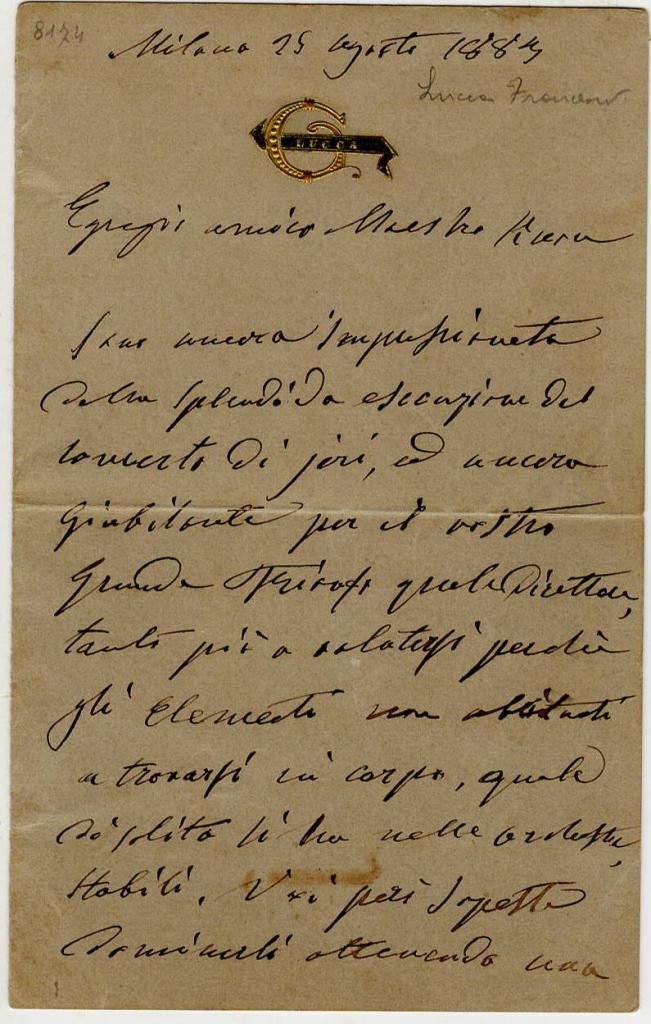 8174
Milano 25 agosto 1883
Lucca
LUCCA
Egregio amico Maestro
Sono ancora impressionata
della splendida esecuzione del
concerto di jeri, ed ancora
giubilante per il vostro
grande trionfo quale Direttore,
tanto più a valutarsi perchè
gli elementi non abituati
a trovarsi in corpo, quale
di solito si ha nelle orchestre
stabili. Voi però sapeste
dominarli ottenendo una